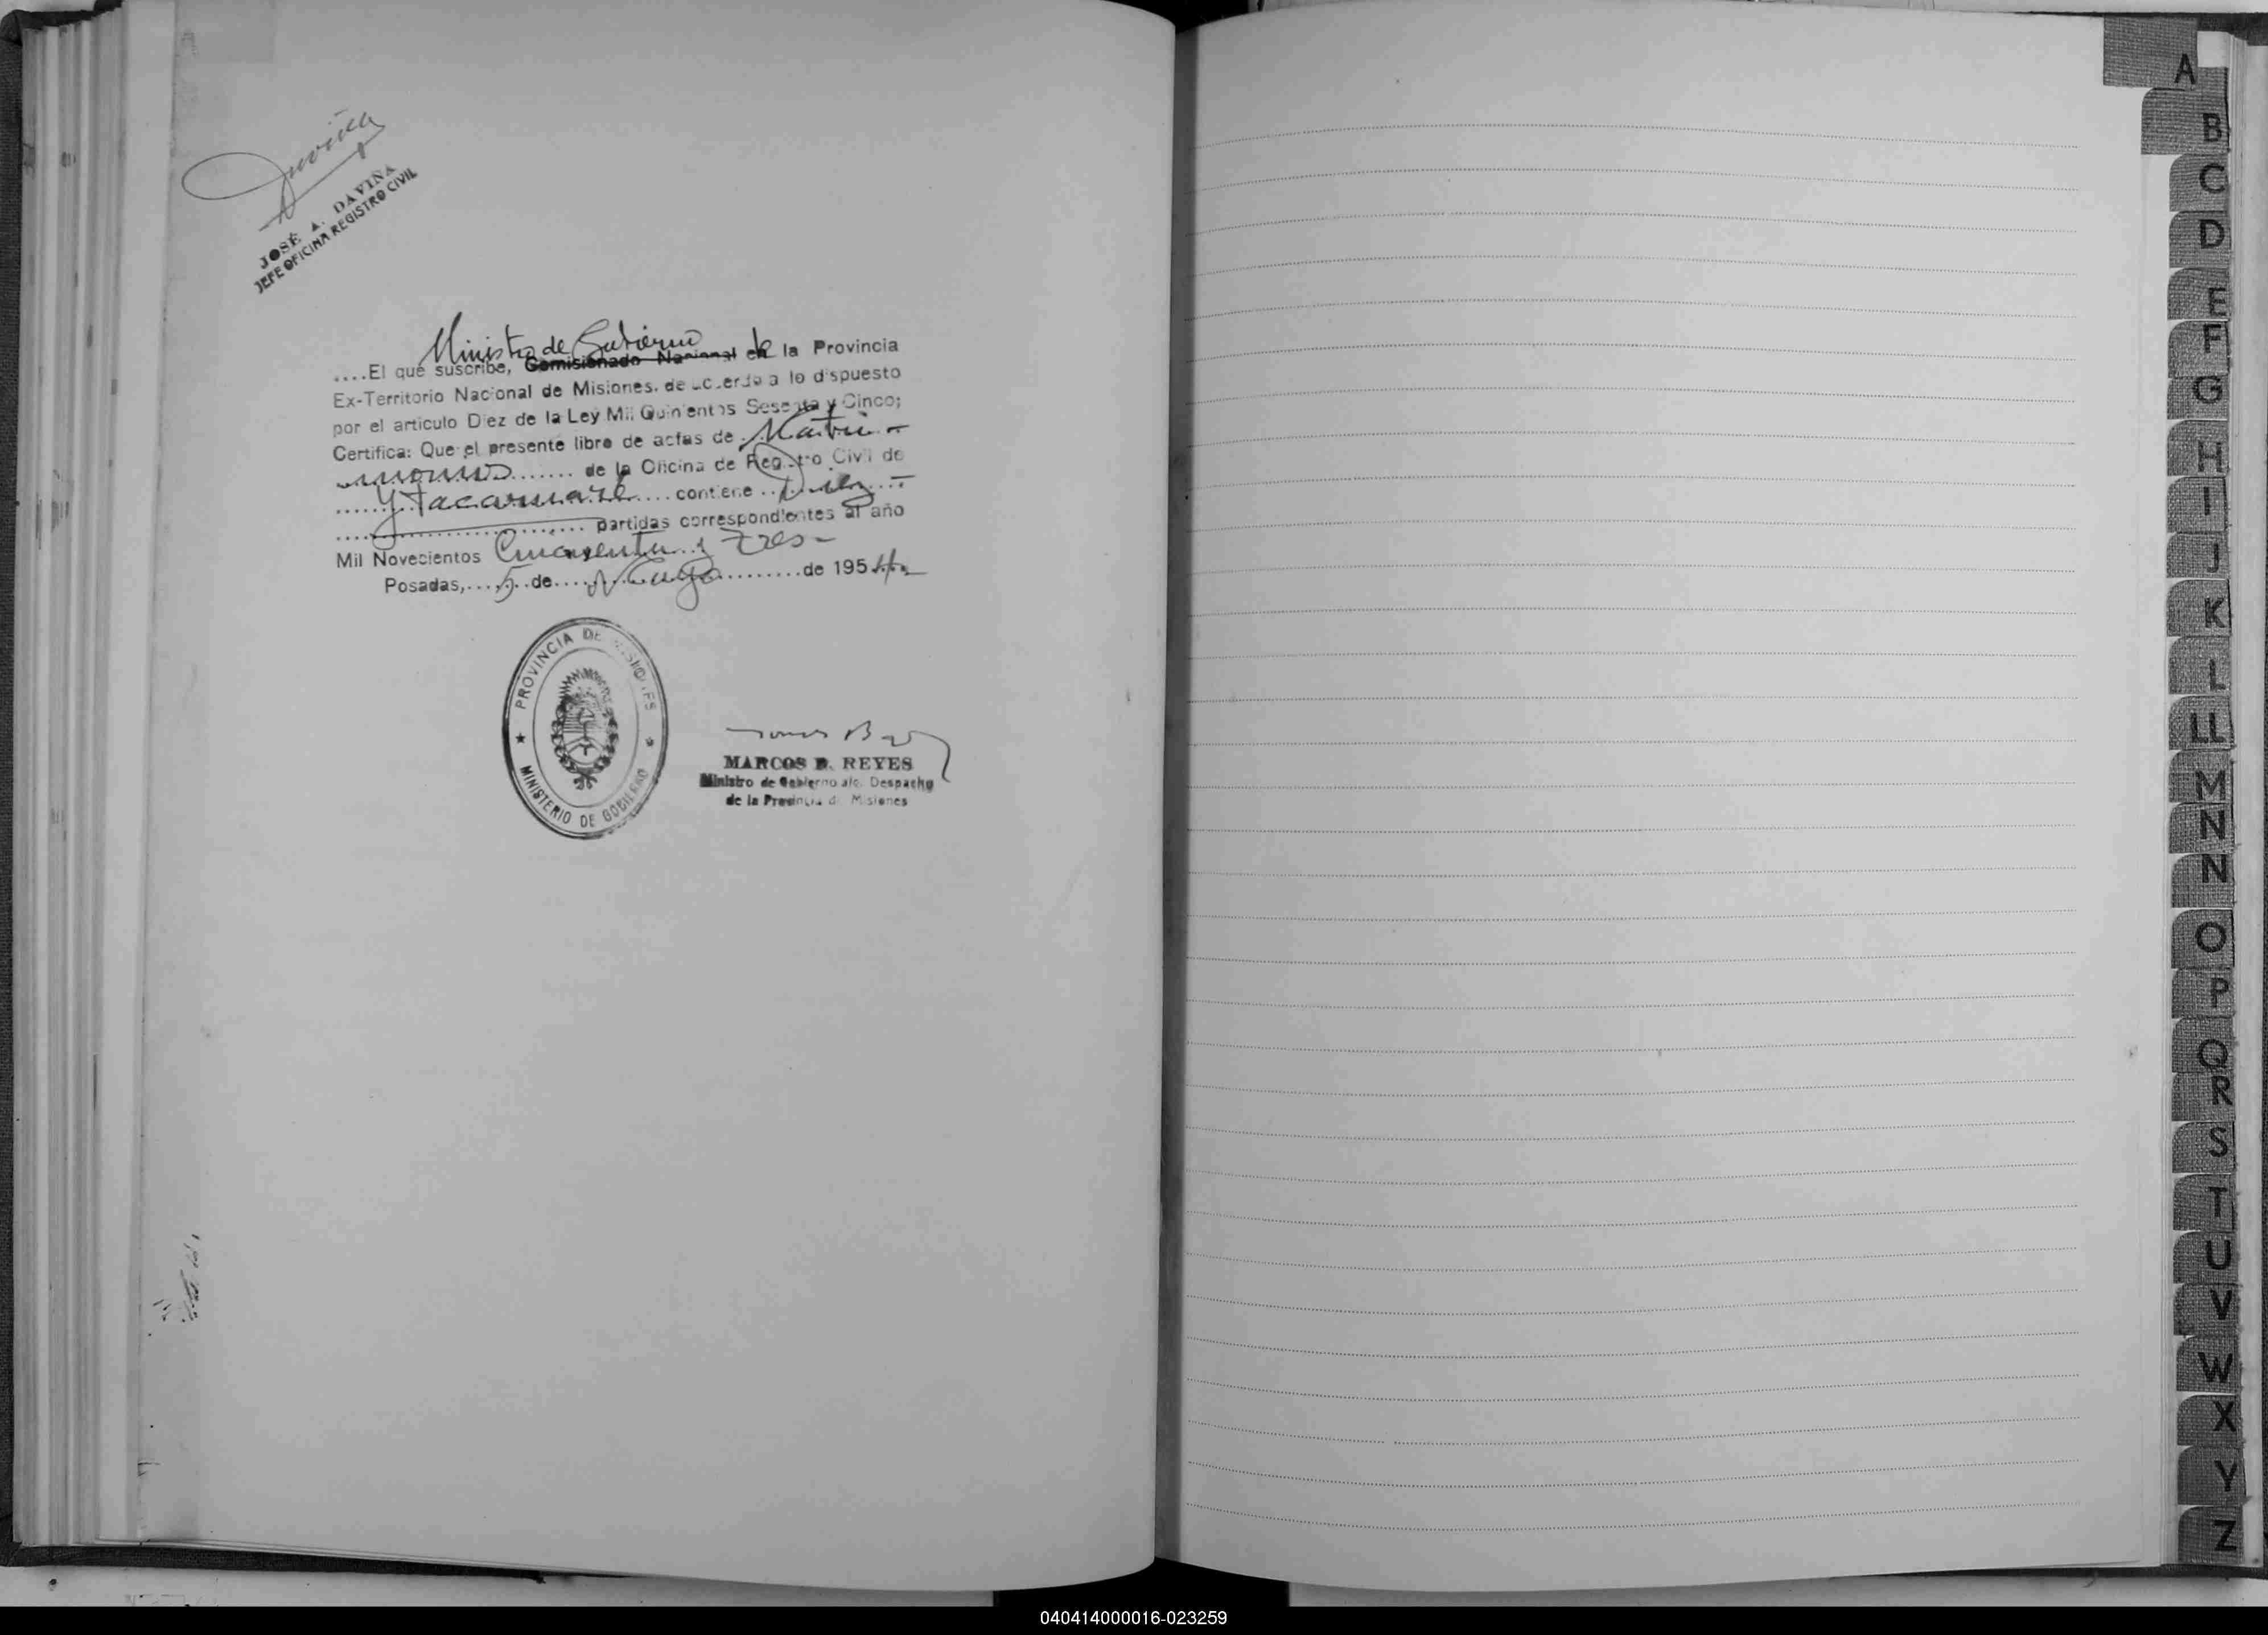 Daviña
JOSÉ A. DAVIÑA
JEFE OFICINA REGISTRO CIVIL
Ministro de Gobierno de
....El que suscribe, Comisionado Nacional en la Provincia
Ex-Territorio Nacional de Misiones, de acuerdo a lo dispuesto
por el artículo Diez de la Ley Mil Quinientos Sesenta y Cinco;
Certifica: Que el presente libro de actas de Matri-
monios....... de la Oficina de Registro Civil de
......Ytacaruaré....contiene..Diez...
.................... partidas correspondientes al año
Mil Novecientos Cincuenta y tres-
Posadas,....5..de....Mayo.........de 1954.-
PROVINCIA DE MISIONES
MINISTERIO DE GOBIERNO
MARCOS B. REYES
Ministro de Gobierno a/c. Despacho
de la Provincia de Misiones
A
B
C
D
E
F
G
H
I
J
K
L
LL
M
N
N
O
P
Q
R
S
T
U
V
W
X
Y
Z
040414000016-023259